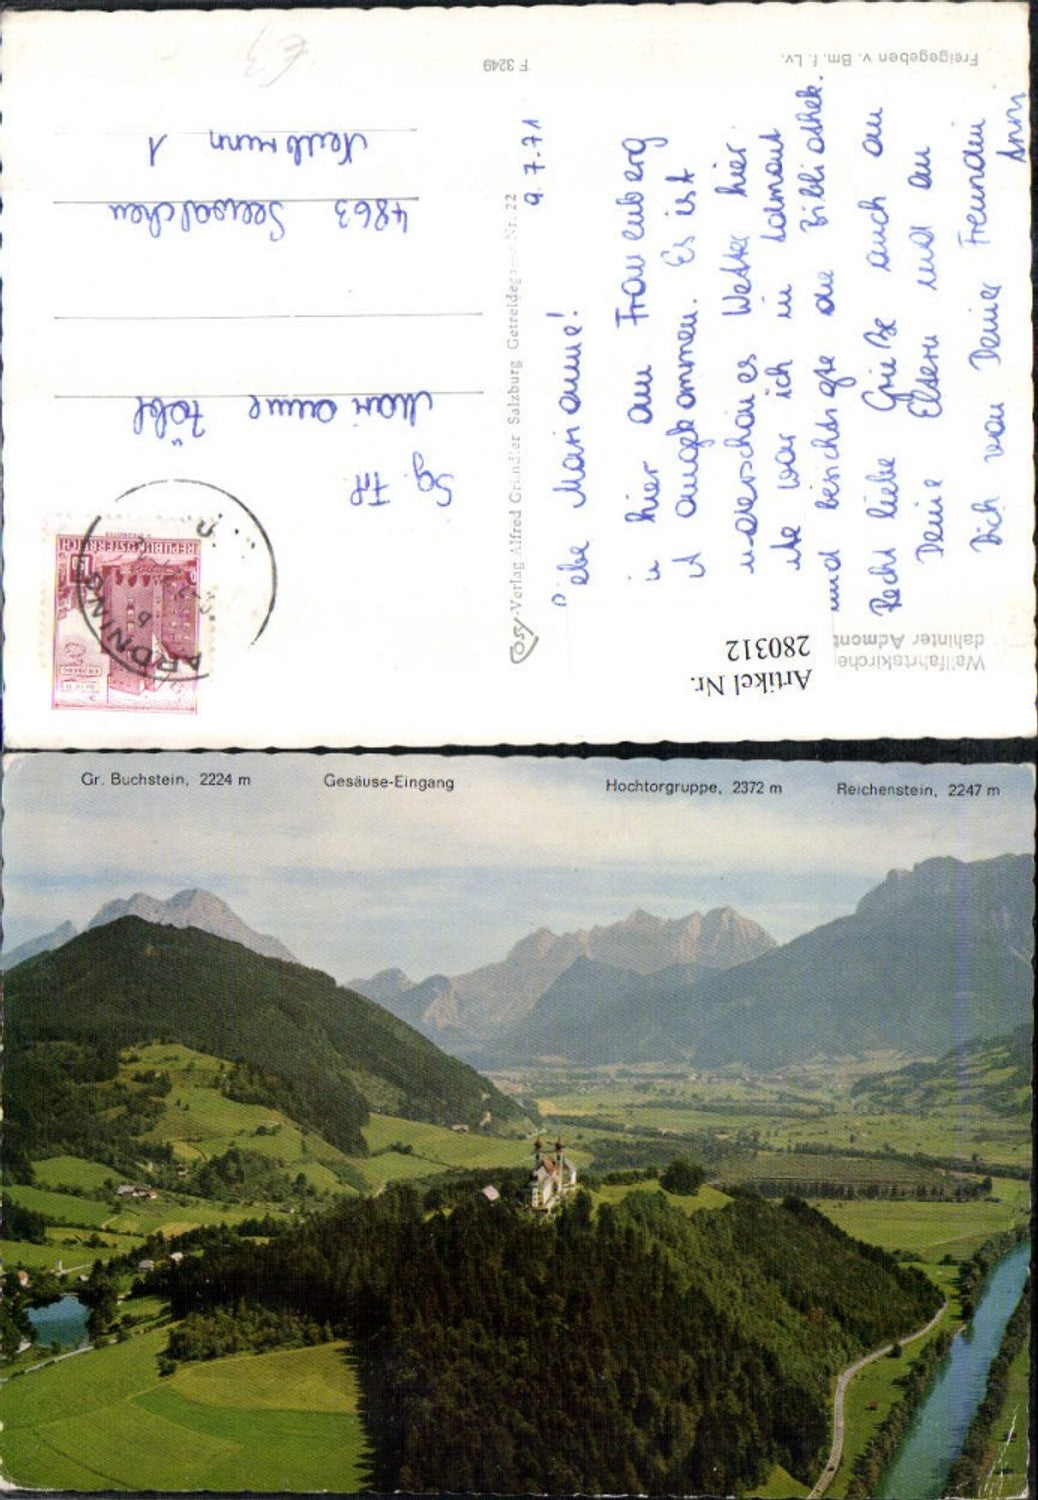 Freigegeben v. Bm. f. Lv.
F 3249
Wallfahrtskirche
dahinter Admont
Artikel Nr.
280312
Cosy-Verlag Alfred Gründler Salzburg Getreidegasse Nr. 22
9.7.71
Liebe Marianne!
hier am Frauenberg
angekommen. Es ist
wunderschönes Wetter hier
war ich in Admont
und besichtigte die Bibliothek.
Recht liebe Grüße auch an
Deine Eltern und an
Dich von Deiner Freundin
REPUBLIK ÖSTERREICH
ARDNING
Sg. Frl.
Marianne
4863 Seewalchen
1
Gr. Buchstein, 2224 m Gesäuse-Eingang Hochtorgruppe, 2372 m Reichenstein, 2247 m